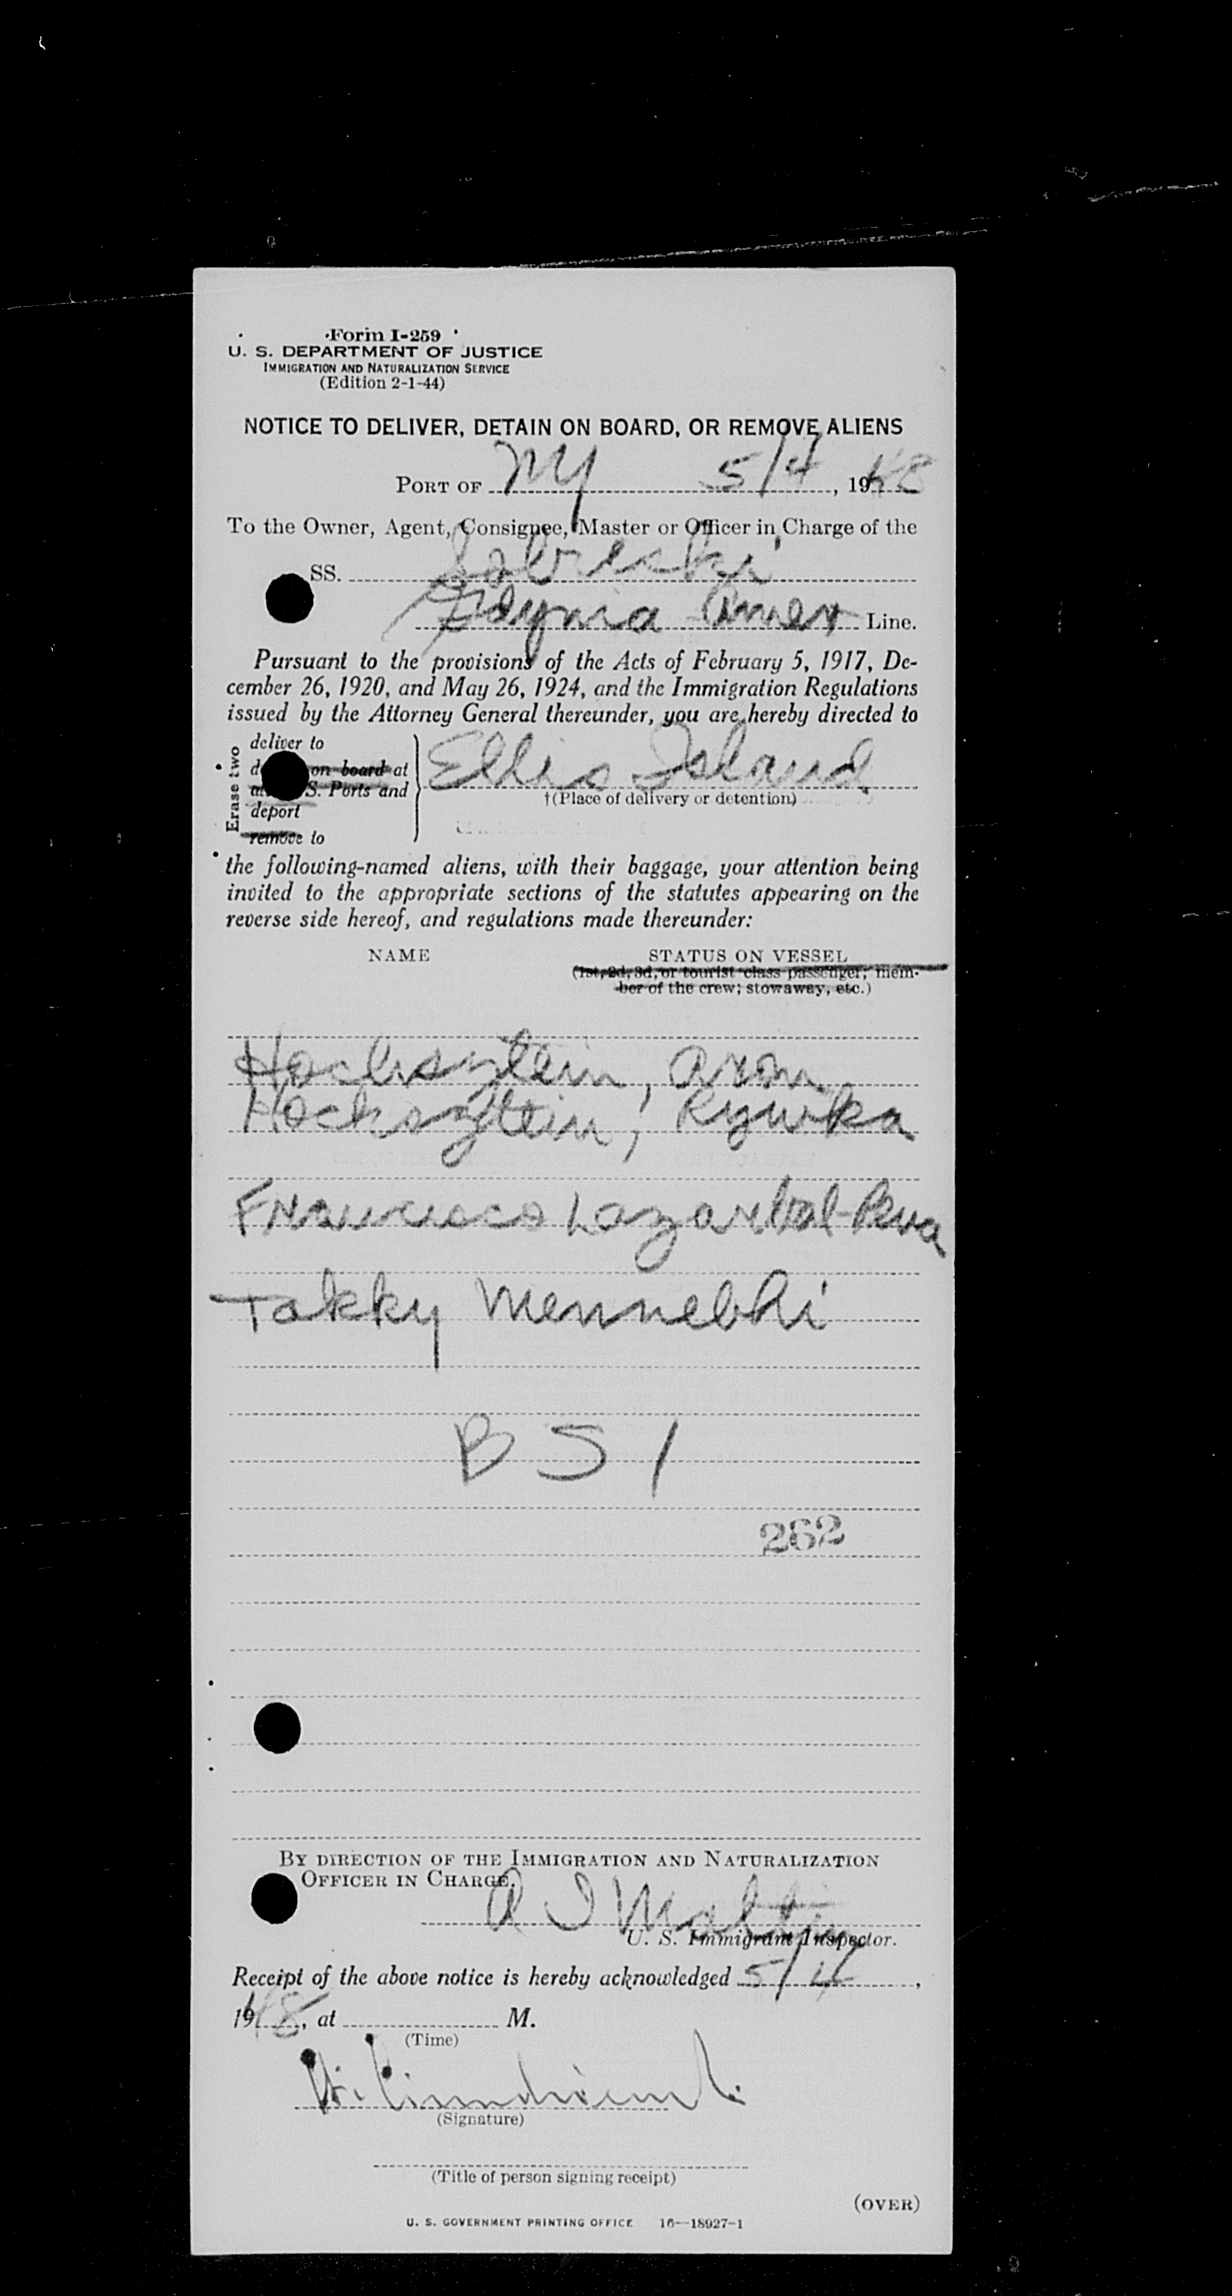 Form I-259
U. S. DEPARTMENT OF JUSTICE
IMMIGRATION AND NATURALIZATION SERVICE
(Edition 2-1-44)
NOTICE TO DELIVER, DETAIN ON BOARD, OR REMOVE ALIENS
PORT OF NY 5/4, 1948
To the Owner, Agent, Consignee, Master or Officer in Charge of the
SS. Sobieski
Gdynia Amer Line.
Pursuant to the provisions of the Acts of February 5, 1917, De-
cember 26, 1920, and May 26, 1924, and the Immigration Regulations
issued by the Attorney General thereunder, you are hereby directed to
Erase two
deliver to
on board at
S. Ports and
deport
remove to
Ellis Island
†(Place of delivery or detention)
the following-named aliens, with their baggage, your attention being
invited to the appropriate sections of the statutes appearing on the
reverse side hereof, and regulations made thereunder:
NAME STATUS ON VESSEL
(1st, 2d, 3d, or tourist class passenger; mem-
ber of the crew; stowaway, etc.)
Hochsztein, Aron
Hochsztein, Rywka
Francisco
Takky Mennebhi
B S I
262
BY DIRECTION OF THE IMMIGRATION AND NATURALIZATION
OFFICER IN CHARGE.
U. S. Immigrant Inspector.
Receipt of the above notice is hereby acknowledged 5/4,
1948, at M.
(Time)
(Signature)
(Title of person signing receipt)
(OVER)
U. S. GOVERNMENT PRINTING OFFICE 16—18927-1